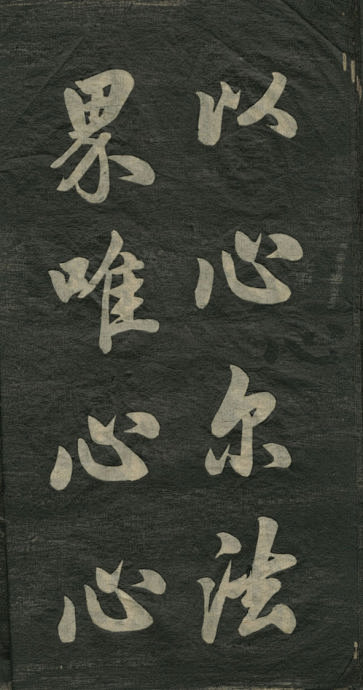 以心尔法
界唯心心